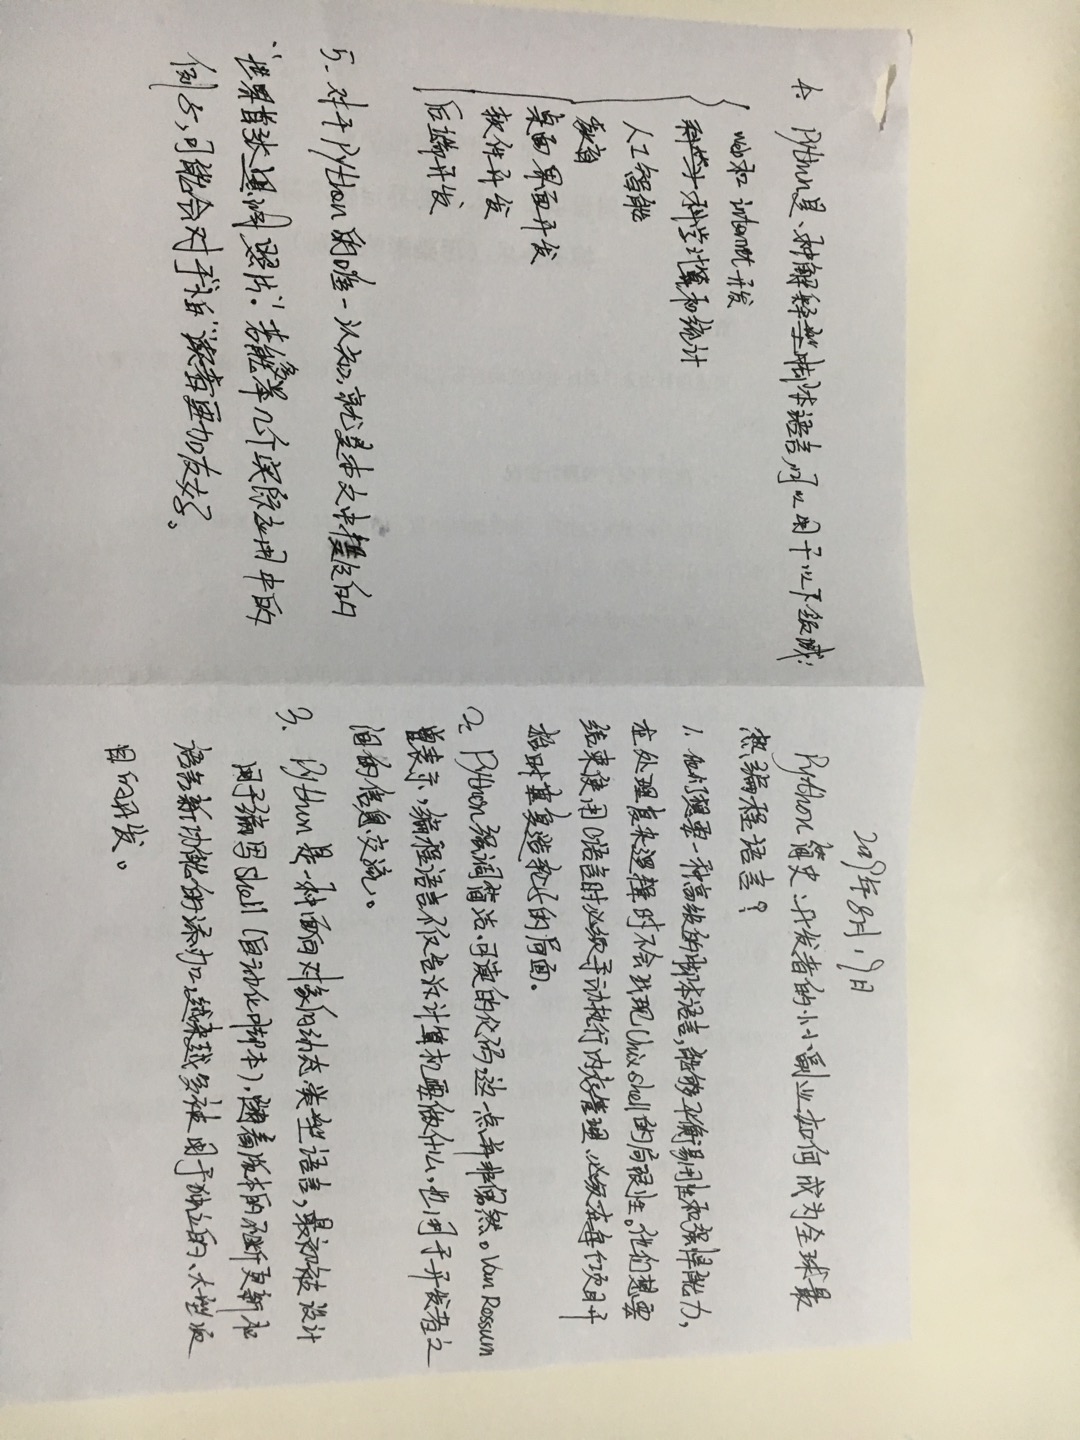 2019年8月19日
Python简史、开发者的小小副业如何成为全球最
热编程语言?
1. 他们想要一种高级的脚本语言,能够平衡易用性和强悍能力,
在处理复杂逻辑时不会出现Unix shell的局限性。他们想要
结束使用C语言时必须手动执行内存管理、必须在每个项目开
始时重复造轮子的局面。
2. Python强调简洁、可读的代码,这一点并非偶然。Van Rossum
曾表示,编程语言不仅告诉计算机要做什么,也用于开发者之
间的信息交流。
3. Python是一种面向对象的动态类型语言,最初被设计
用于编写shell(自动化脚本),随着版本的不断更新和
语言新功能的添加,越来越多被用于独立的、大型项
目的开发。
4. Python是一种解释型脚本语言,可以用于以下领域:
web和internet开发
科学计算和统计
人工智能
教育
桌面界面开发
软件开发
后端开发
5. 对于Python的唯一认知,就是本文中提及的
“世界首张黑洞照片”。若能多举几个实际应用中的
例子,可能会对手稿读者更加友好。